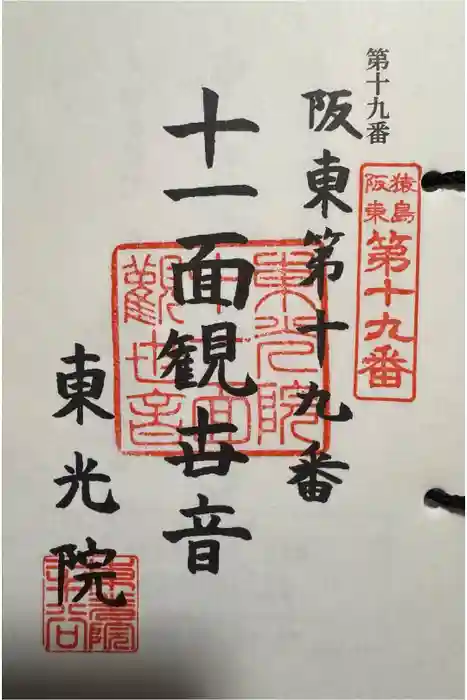 第十九番
猿島
阪東
第十九番
阪東第十九番
十一面観世音
東光院
東光院
十一面
觀世音